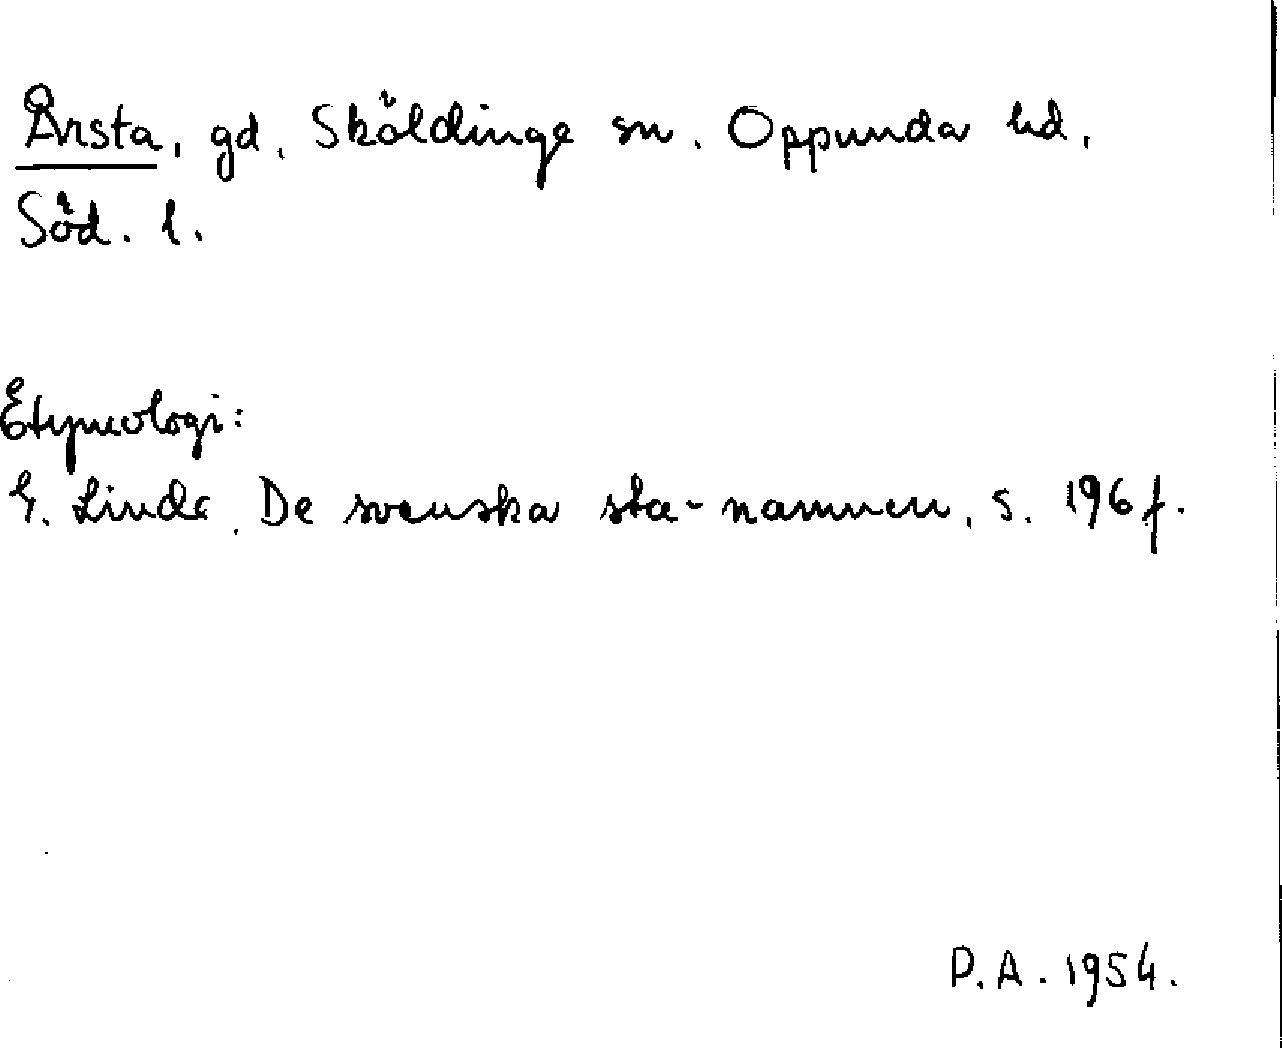 Årsta, gd, Sköldinge sn. Oppunda hd,
Söd. l.
Etymologi:
G. Linde, De svenska sta-namnen, s. 196 f.
P.A. 1954.